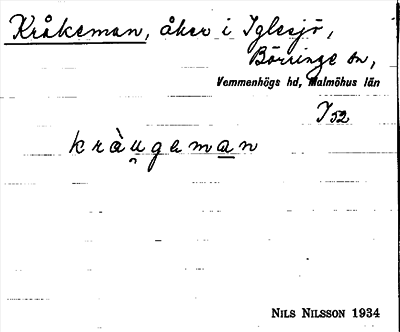 Kråkeman, åker i Iglesjö,
Börringe sn,
Vemmenhögs hd, Malmöhus län
I 52
kràu̯geman
NILS NILSSON 1934